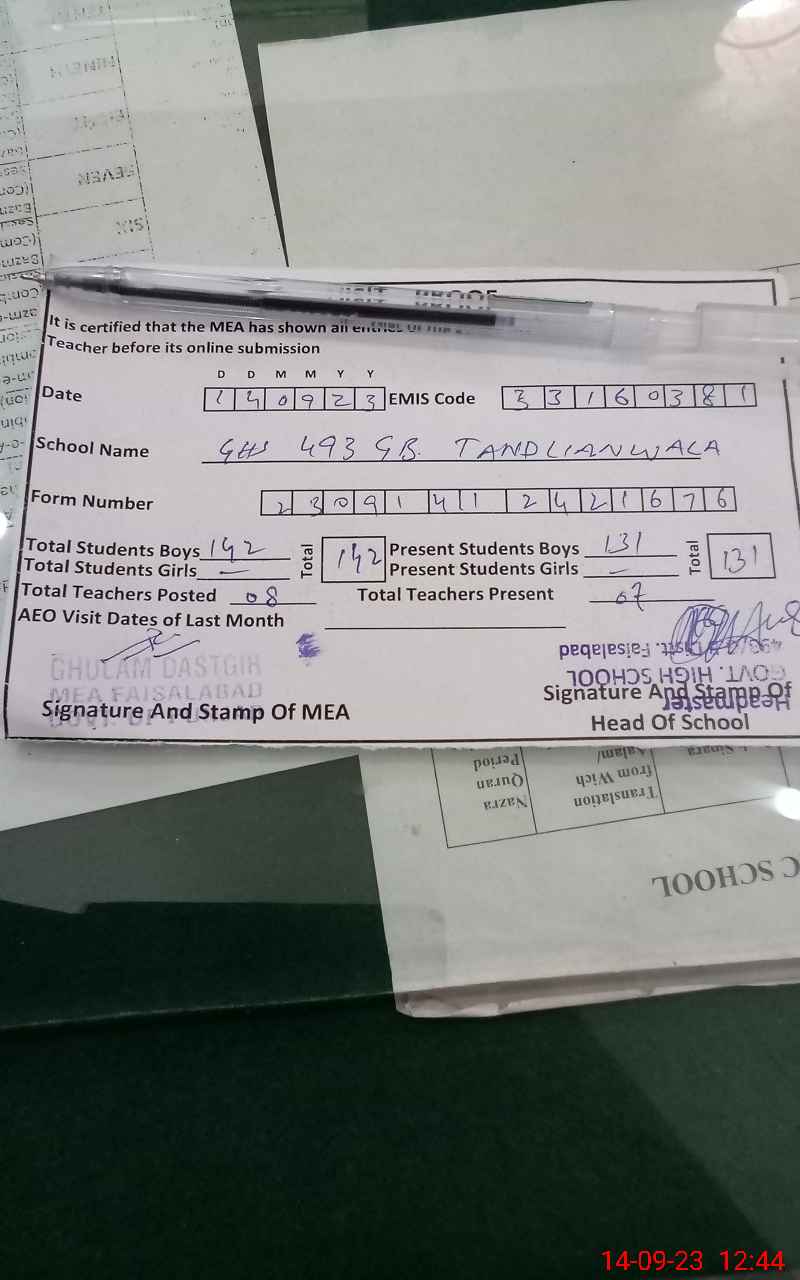 VISIT PROOF
It is certified that the MEA has shown all entries of the
Teacher before its online submission
D D M M Y Y
Date 140923 EMIS Code 33160381
School Name GHS 493 GB. TANDLIANWALA
Form Number 230914112421676
Total Students Boys 142 Total 142 Present Students Boys 131 Total 131
Total Students Girls — Present Students Girls —
Total Teachers Posted 08 Total Teachers Present 07
AEO Visit Dates of Last Month
GHULAM DASTGIR
MEA FAISALABAD
Signature And Stamp Of MEA
Headmaster
GOVT. HIGH SCHOOL
Distt. Faisalabad
Signature And Stamp Of
Head Of School
SEVEN
SIX
Nazra
Quran
Period
Translation
from Wich
C SCHOOL
14-09-23 12:44